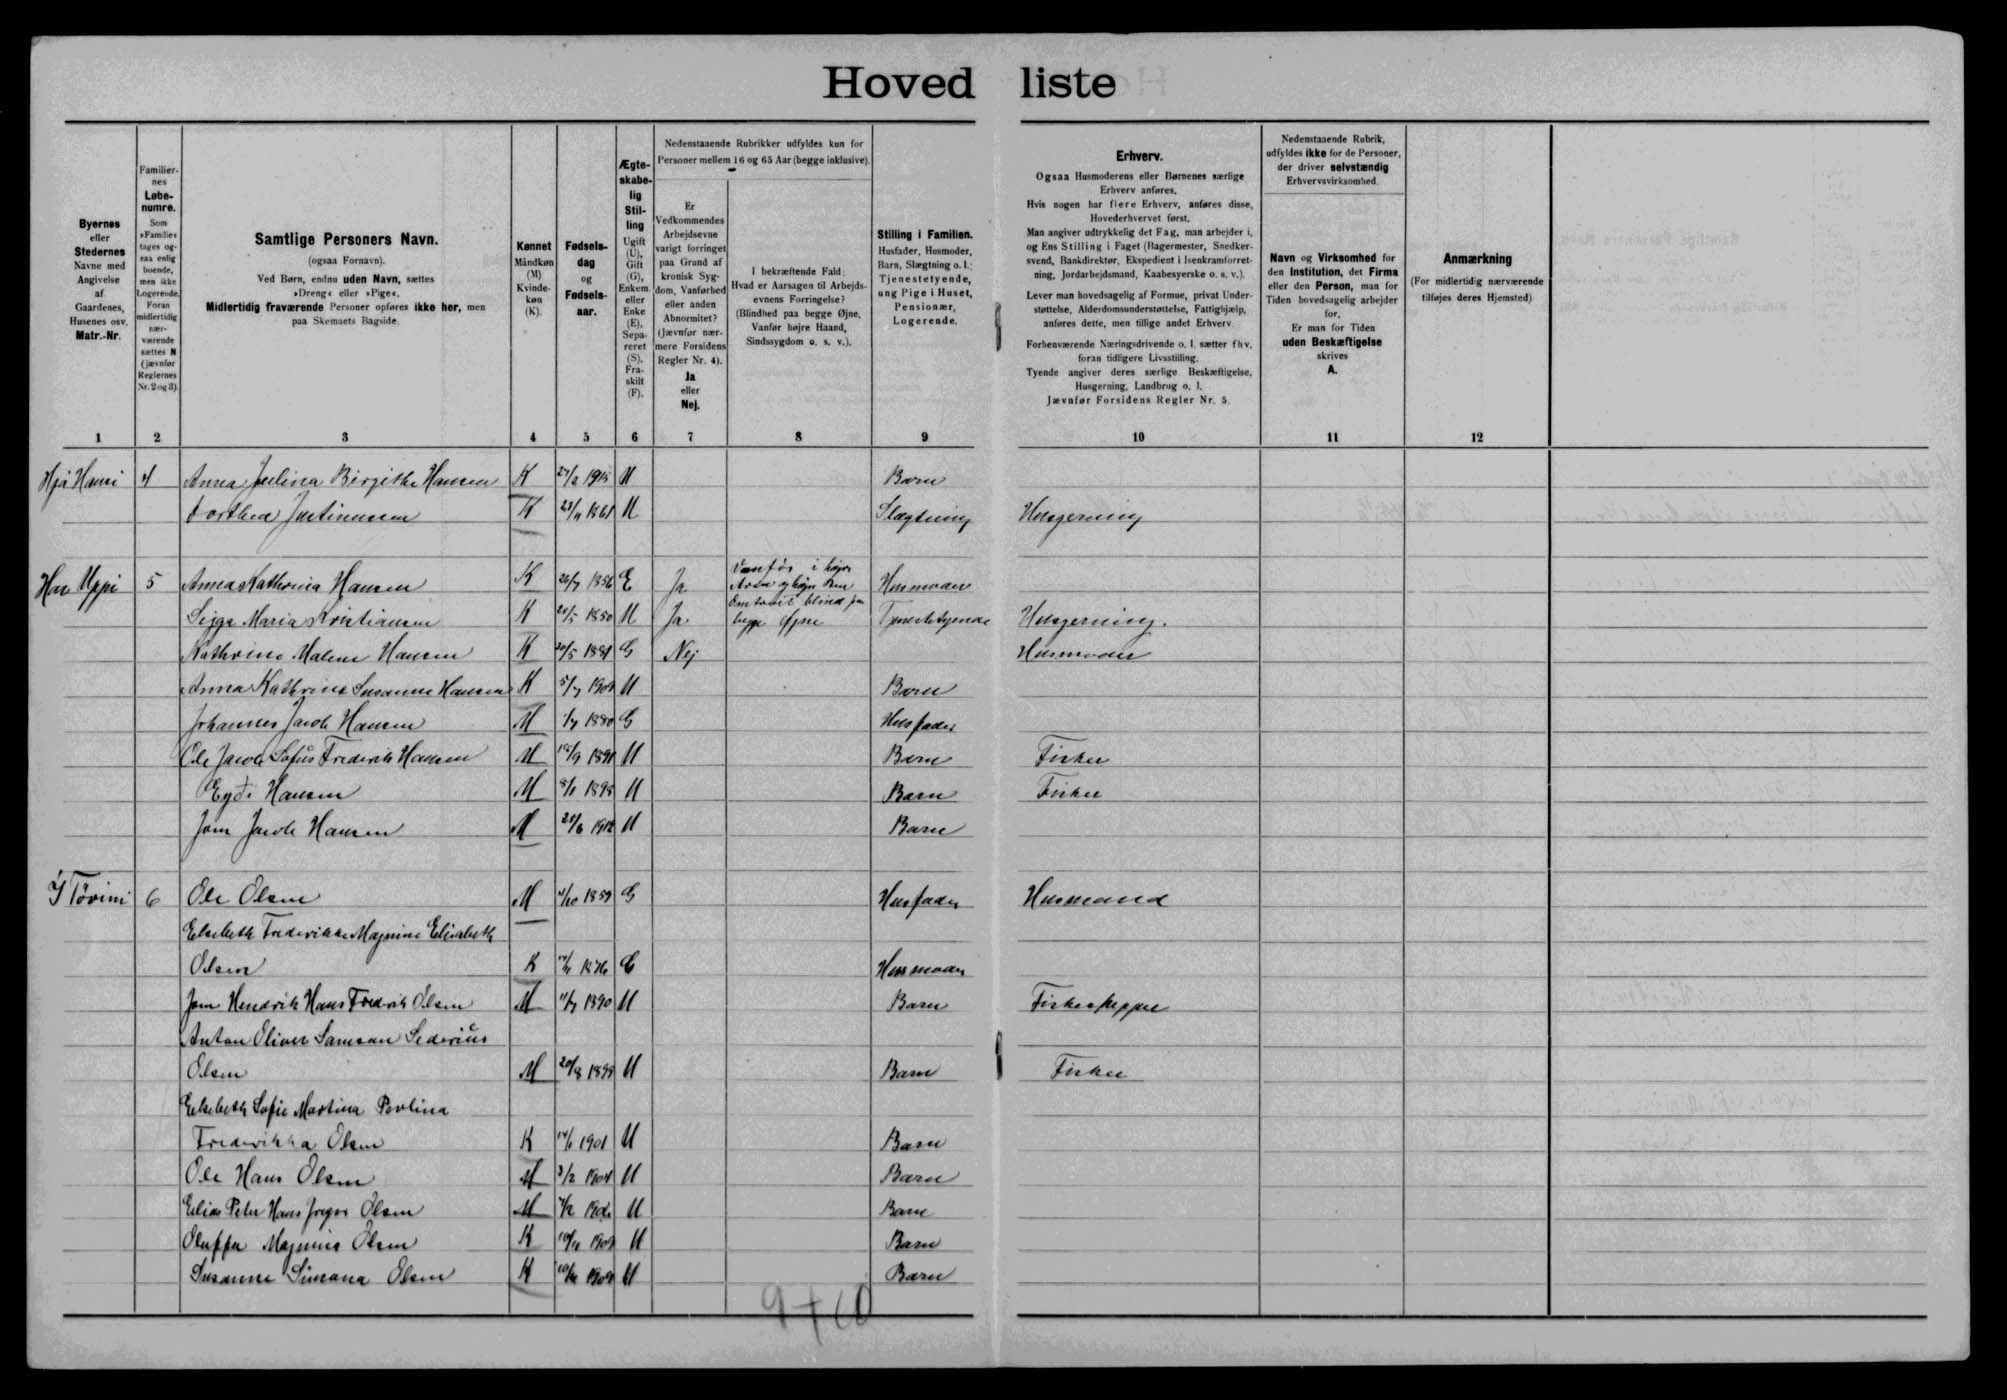 Hovedliste
Byernes eller Stedernes Navne med Angivelse af Gaardenes, Husenes osv. Matr.-Nr.
Familiernes Løbenumre. Som »Familie« tages ogsaa enlig boende, men ikke Logerende. Foran midlertidig nærværende sættes N (jævnfør Reglernes Nr. 2 og 3).
Samtlige Personers Navn. (ogsaa Fornavn). Ved Børn, endnu uden Navn, sættes »Dreng« eller »Pige«. Midlertidig fraværende Personer opføres ikke her, men paa Skemaets Bagside.
Kønnet Mandkøn (M) Kvindekøn (K).
Fødselsdag og Fødselsaar.
Ægteskabelig Stilling Ugift (U), Gift (G), Enkem. eller Enke (E), Separeret (S), Fraskilt (F).
Nedenstaaende Rubrikker udfyldes kun for Personer mellem 16 og 65 Aar (begge inklusive).
Er Vedkommendes Arbejdsevne varigt forringet paa Grund af kronisk Sygdom, Vanførhed eller anden Abnormitet? (Jævnfør nærmere Forsidens Regler Nr. 4). Ja eller Nej.
I bekræftende Fald: Hvad er Aarsagen til Arbejdsevnens Forringelse? (Blindhed paa begge Øjne, Vanfør højre Haand, Sindssygdom o. s. v.).
Stilling i Familien. Husfader, Husmoder, Barn, Slægtning o. l.; Tjenestetyende, ung Pige i Huset, Pensionær, Logerende.
Erhverv.
Ogsaa Husmoderens eller Børnenes særlige Erhverv anføres.
Hvis nogen har flere Erhverv, anføres disse, Hovederhvervet først.
Man angiver udtrykkelig det Fag, man arbejder i, og Ens Stilling i Faget (Bagermester, Snedkersvend, Bankdirektør, Ekspedient i Isenkramforretning, Jordarbejdsmand, Kaabesyerske o. s. v.).
Lever man hovedsagelig af Formue, privat Understøttelse, Alderdomsunderstøttelse, Fattighjælp, anføres dette, men tillige andet Erhverv.
Forhenværende Næringsdrivende o. l. sætter fhv. foran tidligere Livsstilling.
Tyende angiver deres særlige Beskæftigelse, Husgerning, Landbrug o. l.
Jævnfør Forsidens Regler Nr. 5.
Nedenstaaende Rubrik, udfyldes ikke for de Personer, der driver selvstændig Erhvervsvirksomhed.
Navn og Virksomhed for den Institution, det Firma eller den Person, man for Tiden hovedsagelig arbejder for. Er man for Tiden uden Beskæftigelse skrives A.
Anmærkning (For midlertidig nærværende tilføjes deres Hjemsted)
1 2 3 4 5 6 7 8 9 10 11 12
Hjá Hansi 4 Anna Julina Birgithe Hansen K U Barn
Dorthea Justinussen K 23/11 1861 U Slægtning Husgerning
Har Uppi 5 Anna Kathrina Hansen K 26/7 1856 E Ja Vanfør i højre Arm og højre Ben Husmoder
Sigga Maria Kristiansen K 21/5 1850 U Ja Omtrent blind paa begge Øjne Tjenestetyende Husgerning.
Kathrine Malene Hansen K 20/5 1881 G Nej Husmoder
Anna Kathrine Susanne Hansen K 5/7 1909 U Barn
Johannes Jacob Hansen M 1/7 1880 G Husfader
Ole Jacob Sofus Frederik Hansen M 18/9 1891 U Barn Fisker
Eydi Hansen M 8/1 1898 U Barn Fisker
Jom Jacob Hansen M 21/6 1912 U Barn
Í Tövini 6 Ole Olsen M 4/10 1859 G Husfader Husmand
Elsebeth Frederikke Magnine Elisabeth
Olsen K 1876 G Husmoder
Jom Hendrik Hans Fredrik Olsen M 11/7 1890 U Barn Fiskeskipper
Anton Oliver Samson Sederius
Olsen M 20/8 1898 U Barn Fisker
Elsebeth Sofie Martina Perlina
Frederikka Olsen K 14/1 1901 U Barn
Ole Hans Olsen M 3/2 1904 U Barn
Elias Peter Hans Olsen M 7/2 1906 U Barn
Magnine Olsen K 10/11 1909 U Barn
Susanne Simona Olsen K 10/11 1909 U Barn
9+10